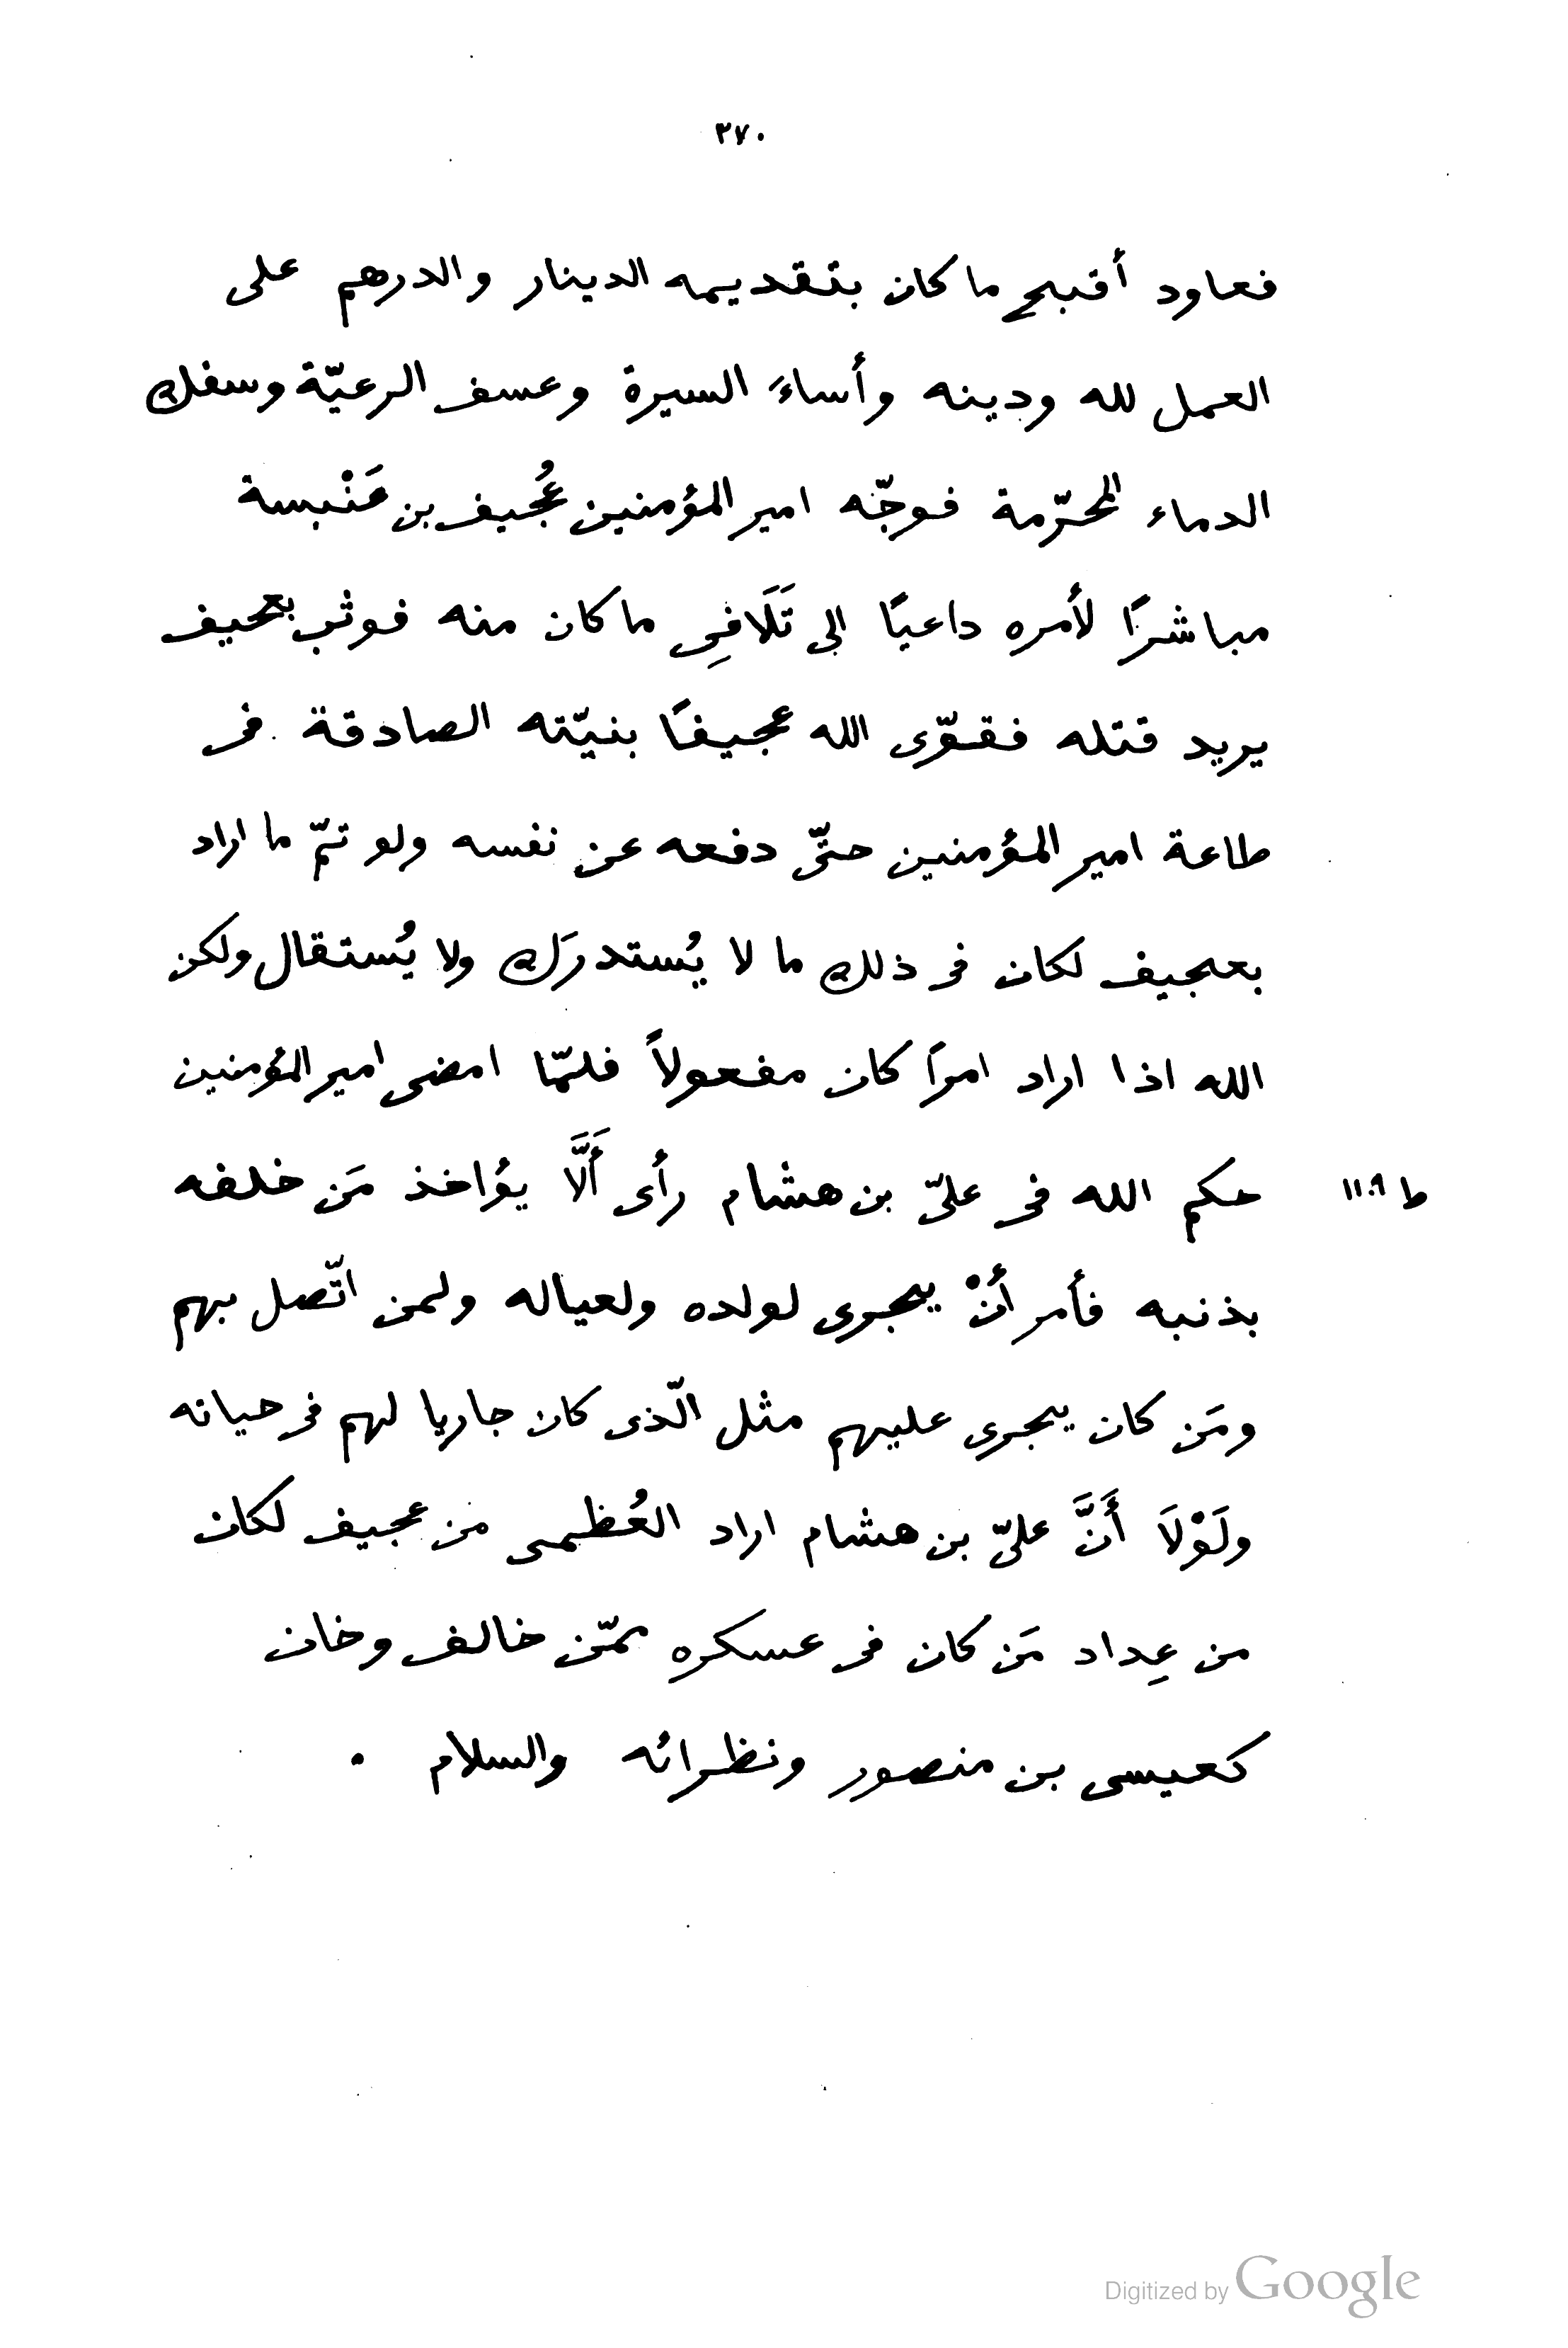 ٢٧٠
فعاود أقبح ما كان بتقديمه الدينار والدرهم على
العمل لله ودينه وأساءَ السيرة وعسف الرعيّة وسفك
الدماء المحرّمة فوجّه امير المؤمنين عُجيف بن عَنْبسة
مباشرًا لأمره داعيًا الى تَلَافِى ما كان منه فوثب بعجيف
يريد قتله فقوّى الله عجيفًا بنيّته الصادقة فى
طاعة امير المؤمنين حتّى دفعه عن نفسه ولو تمّ ما اراد
بعجيف لكان فى ذلك ما لا يُستدرَك ولا يُستقال ولكن
الله اذا اراد امرًا كان مفعولاً فلمّا امضى امير المؤمنين
حكم الله فى علىّ بن هشام رأى أَلَّا يؤاخذ مَن خلفه
ط ١١٠٩
بذنبه فأمر أنْ يجرى لولده ولعياله ولمن اتّصل بهم
ومَن كان يجرى عليهم مثل الّذى كان جاريا لهم فى حياته
ولَوْلَا أَنَّ علىّ بن هشام اراد العُظمى من عجيف لكان
من عِداد مَن كان فى عسكره ممّن خالف وخان
كعيسى بن منصور ونظرائه والسلام ٠
Digitized by Google